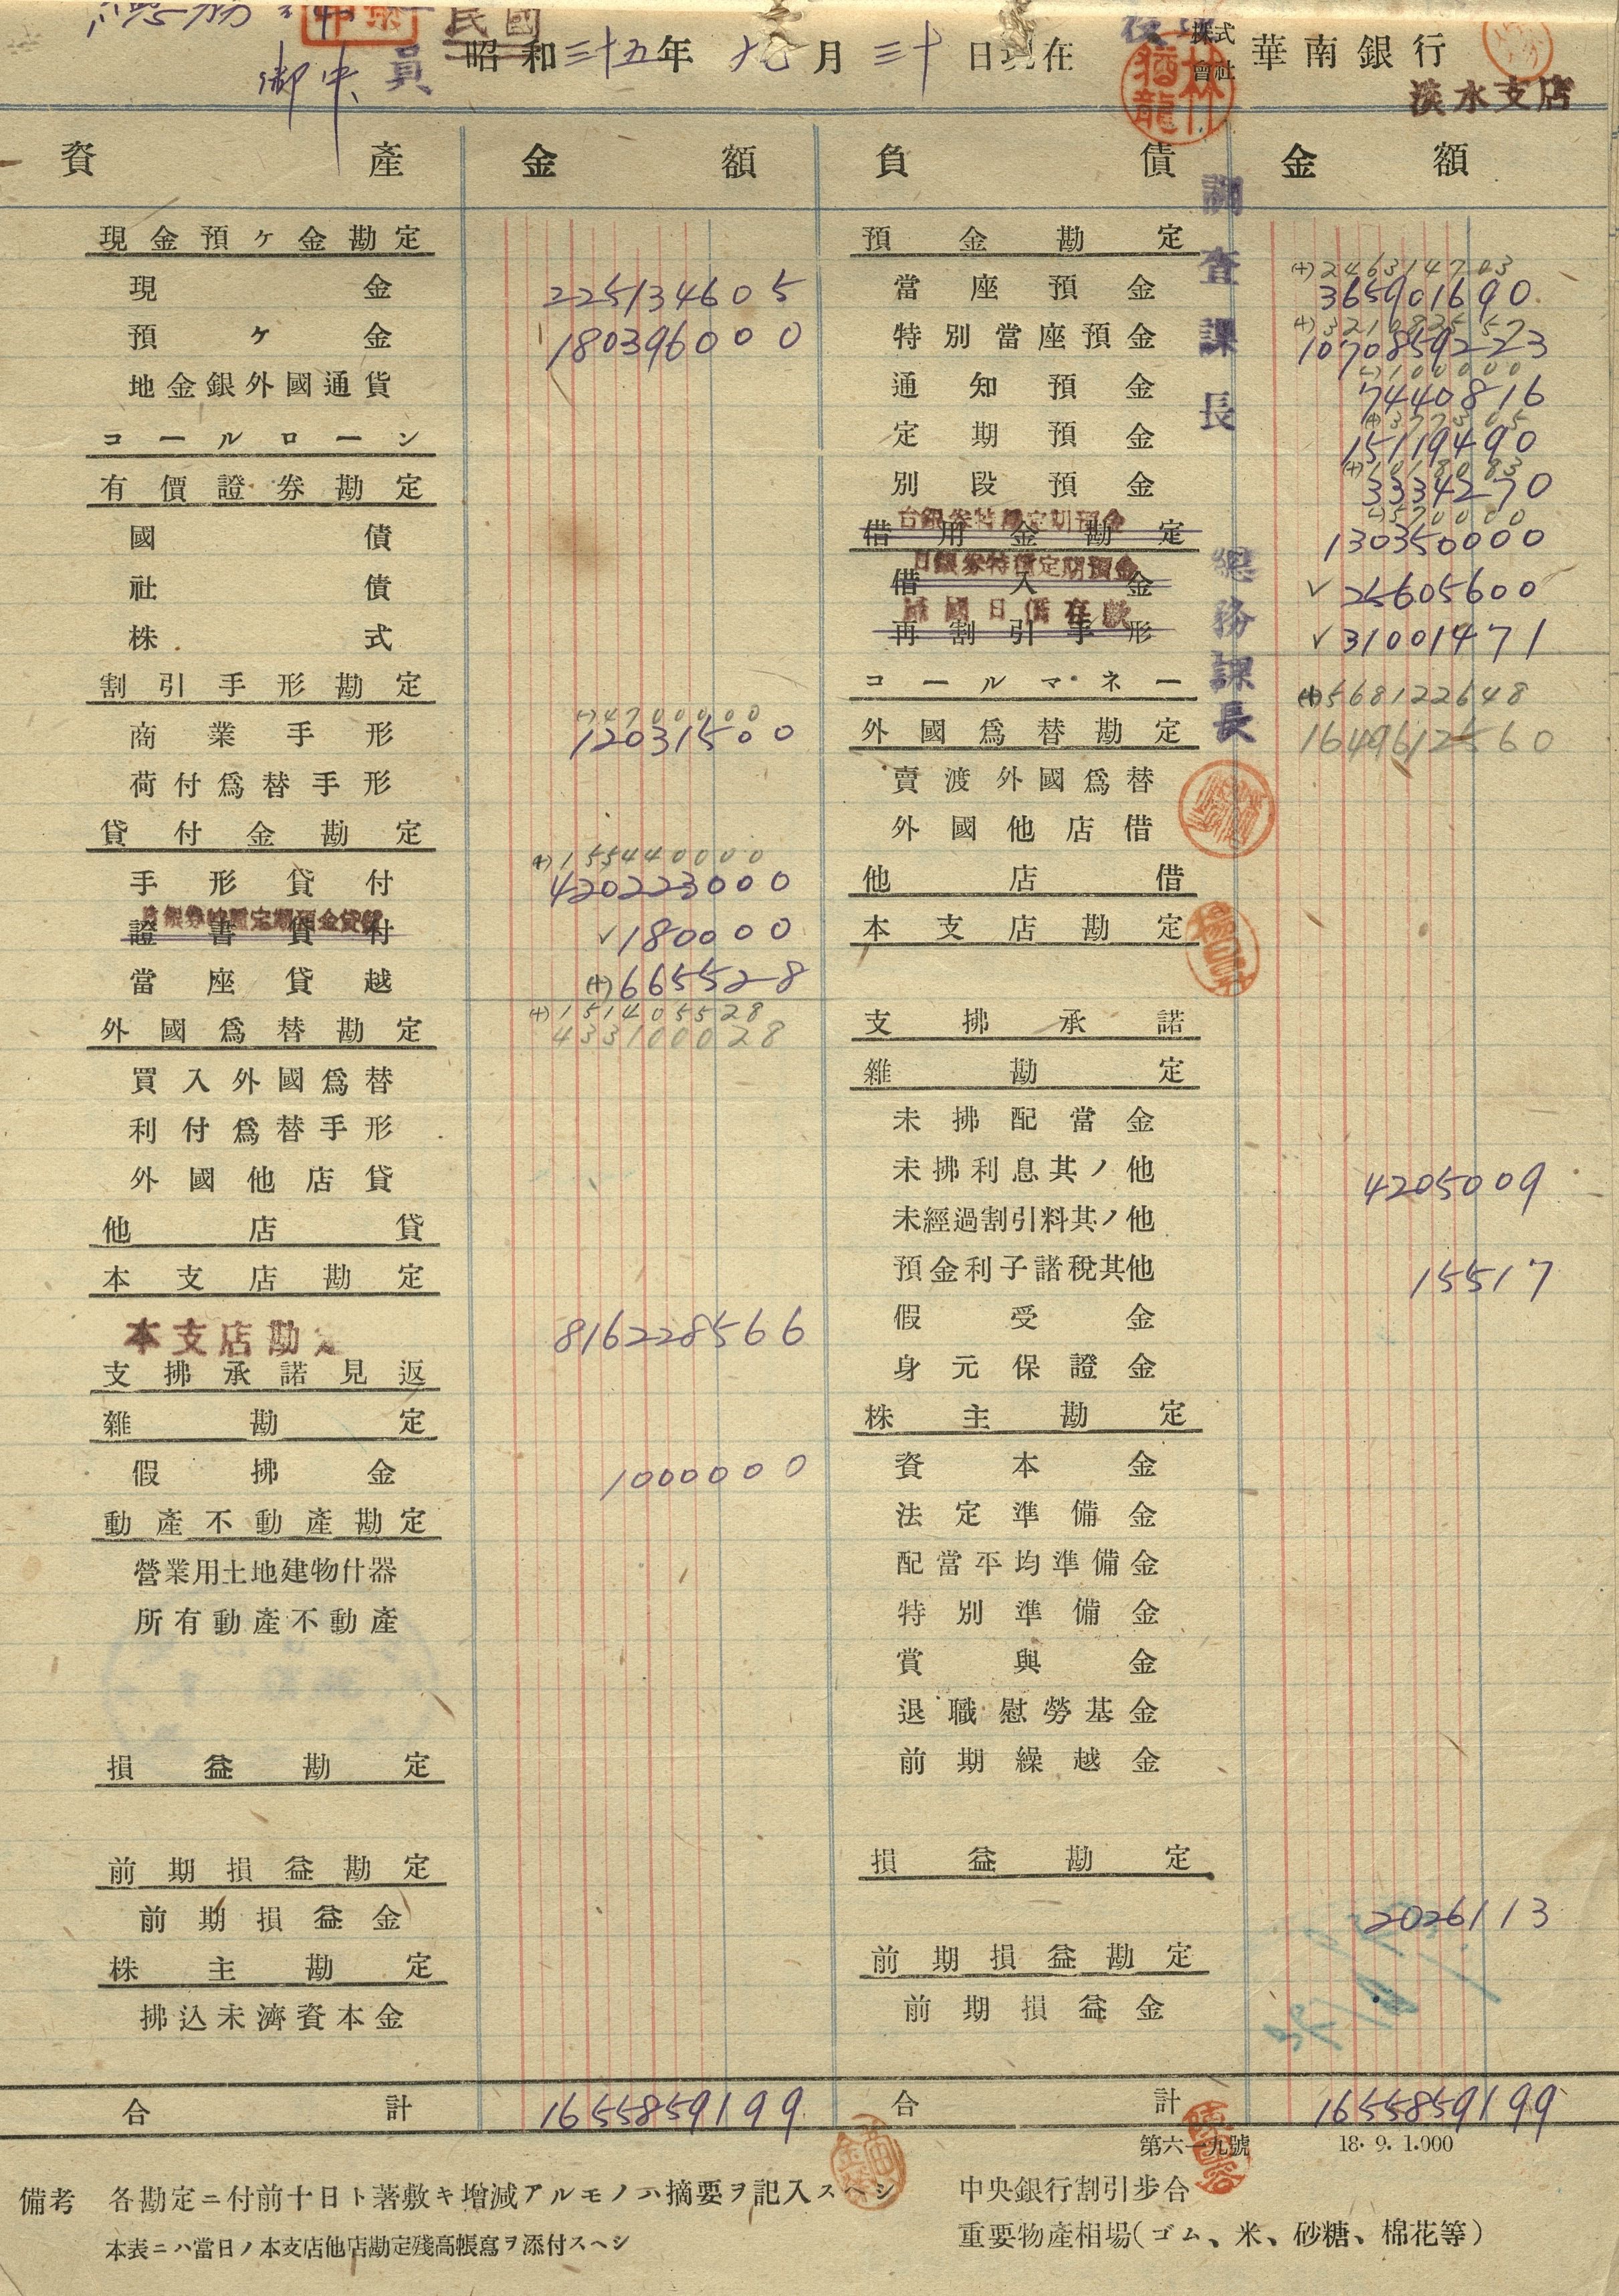 御中
員
民國
昭和三十五年 九月 三十日現在
株式會社 華南銀行
淡水支店
林猶龍
資產 金額 負債 金額
調查課長
總務課長
現金預ケ金勘定
現金 225134605
預ケ金 180396000
地金銀外國通貨
コールローン
有價證券勘定
國債
社債
株式
割引手形勘定
(-)47000000
商業手形 12031500
荷付爲替手形
貸付金勘定
(+)155440000
手形貸付 420223000
證書貸付 ✓180000
當座貸越 (+)665528
(+)151405528
外國爲替勘定 433100028
買入外國爲替
利付爲替手形
外國他店貸
他店貸
本支店勘定
本支店勘定 816228566
支拂承諾見返
雜勘定
假拂金 1000000
動產不動產勘定
營業用土地建物什器
所有動產不動產
損益勘定
前期損益勘定
前期損益金
株主勘定
拂込未濟資本金
合計 1655859199
預金勘定
(+)246314703
當座預金 365901690
特別當座預金 1070859223
(-)100000
通知預金 7440816
(+)377305
定期預金 15119490
(+)1018083
別段預金 3334270
(-)570000
台銀券特種定期預金
借用金勘定 130350000
日銀券特種定期預金
借入金 ✓25605600
再割引手形 ✓31001471
コールマネー (+)568122648
外國爲替勘定 1649612560
賣渡外國爲替
外國他店借
他店借
本支店勘定
支拂承諾
雜勘定
未拂配當金
未拂利息其ノ他 4205009
未經過割引料其ノ他
預金利子諸稅其他 15517
假受金
身元保證金
株主勘定
資本金
法定準備金
配當平均準備金
特別準備金
賞與金
退職慰勞基金
前期繰越金
損益勘定
2026113
前期損益勘定
前期損益金
合計 1655859199
第六一九號 18.9.1.000
備考 各勘定ニ付前十日ト著敷キ增減アルモノハ摘要ヲ記入スヘシ
本表ニハ當日ノ本支店他店勘定殘高帳寫ヲ添付スヘシ
中央銀行割引步合
重要物產相場(ゴム、米、砂糖、棉花等)